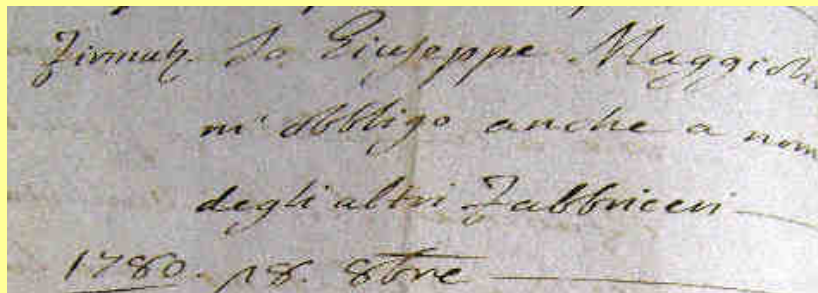 Firmatj. Io Giuseppe Maggioli
m'obbligo anche a nom
degli altri Fabbriceri
1780. 18. 8bre